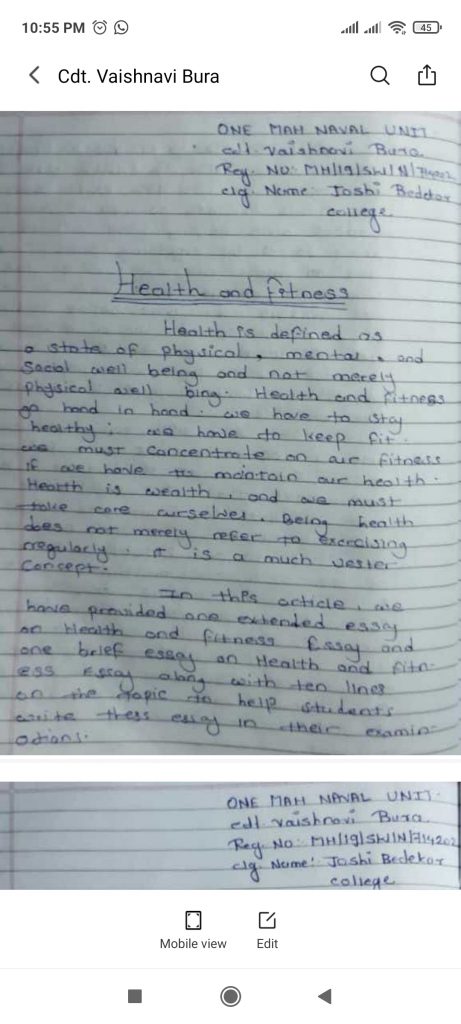 10:55 PM
45
Cdt. Vaishnavi Bura
ONE MAH NAVAL UNIT
cdt. vaishnavi Bura
Reg. NO: MH/19/SW/N/
clg. Name: Joshi Bedekar
college
Health and fitness
Health is defined as
a state of physical, mental, and
Social well being and not merely
physical well bing. Health and fitness
go hand in hand. we have to stay
healthy; we have to keep fit.
we must concentrate on our fitness
if we have to maintain our health.
Health is wealth, and we must
take care ourselves. Being health
does not merely refer to exercising
regularly. it is a much vaster
Concept.
In this article, we
have provided one extended essay
on Health and fitness Essay and
one brief essay on Health and fitn-
ess Essay along with ten lines
on the topic to help students
write thess essay in their examin-
ations.
ONE MAH NAVAL UNIT.
cdt. vaishnavi Bura
Reg. No: MH/19/SW/N/714202
clg. Name: Joshi Bedekar
college
Mobile view
Edit